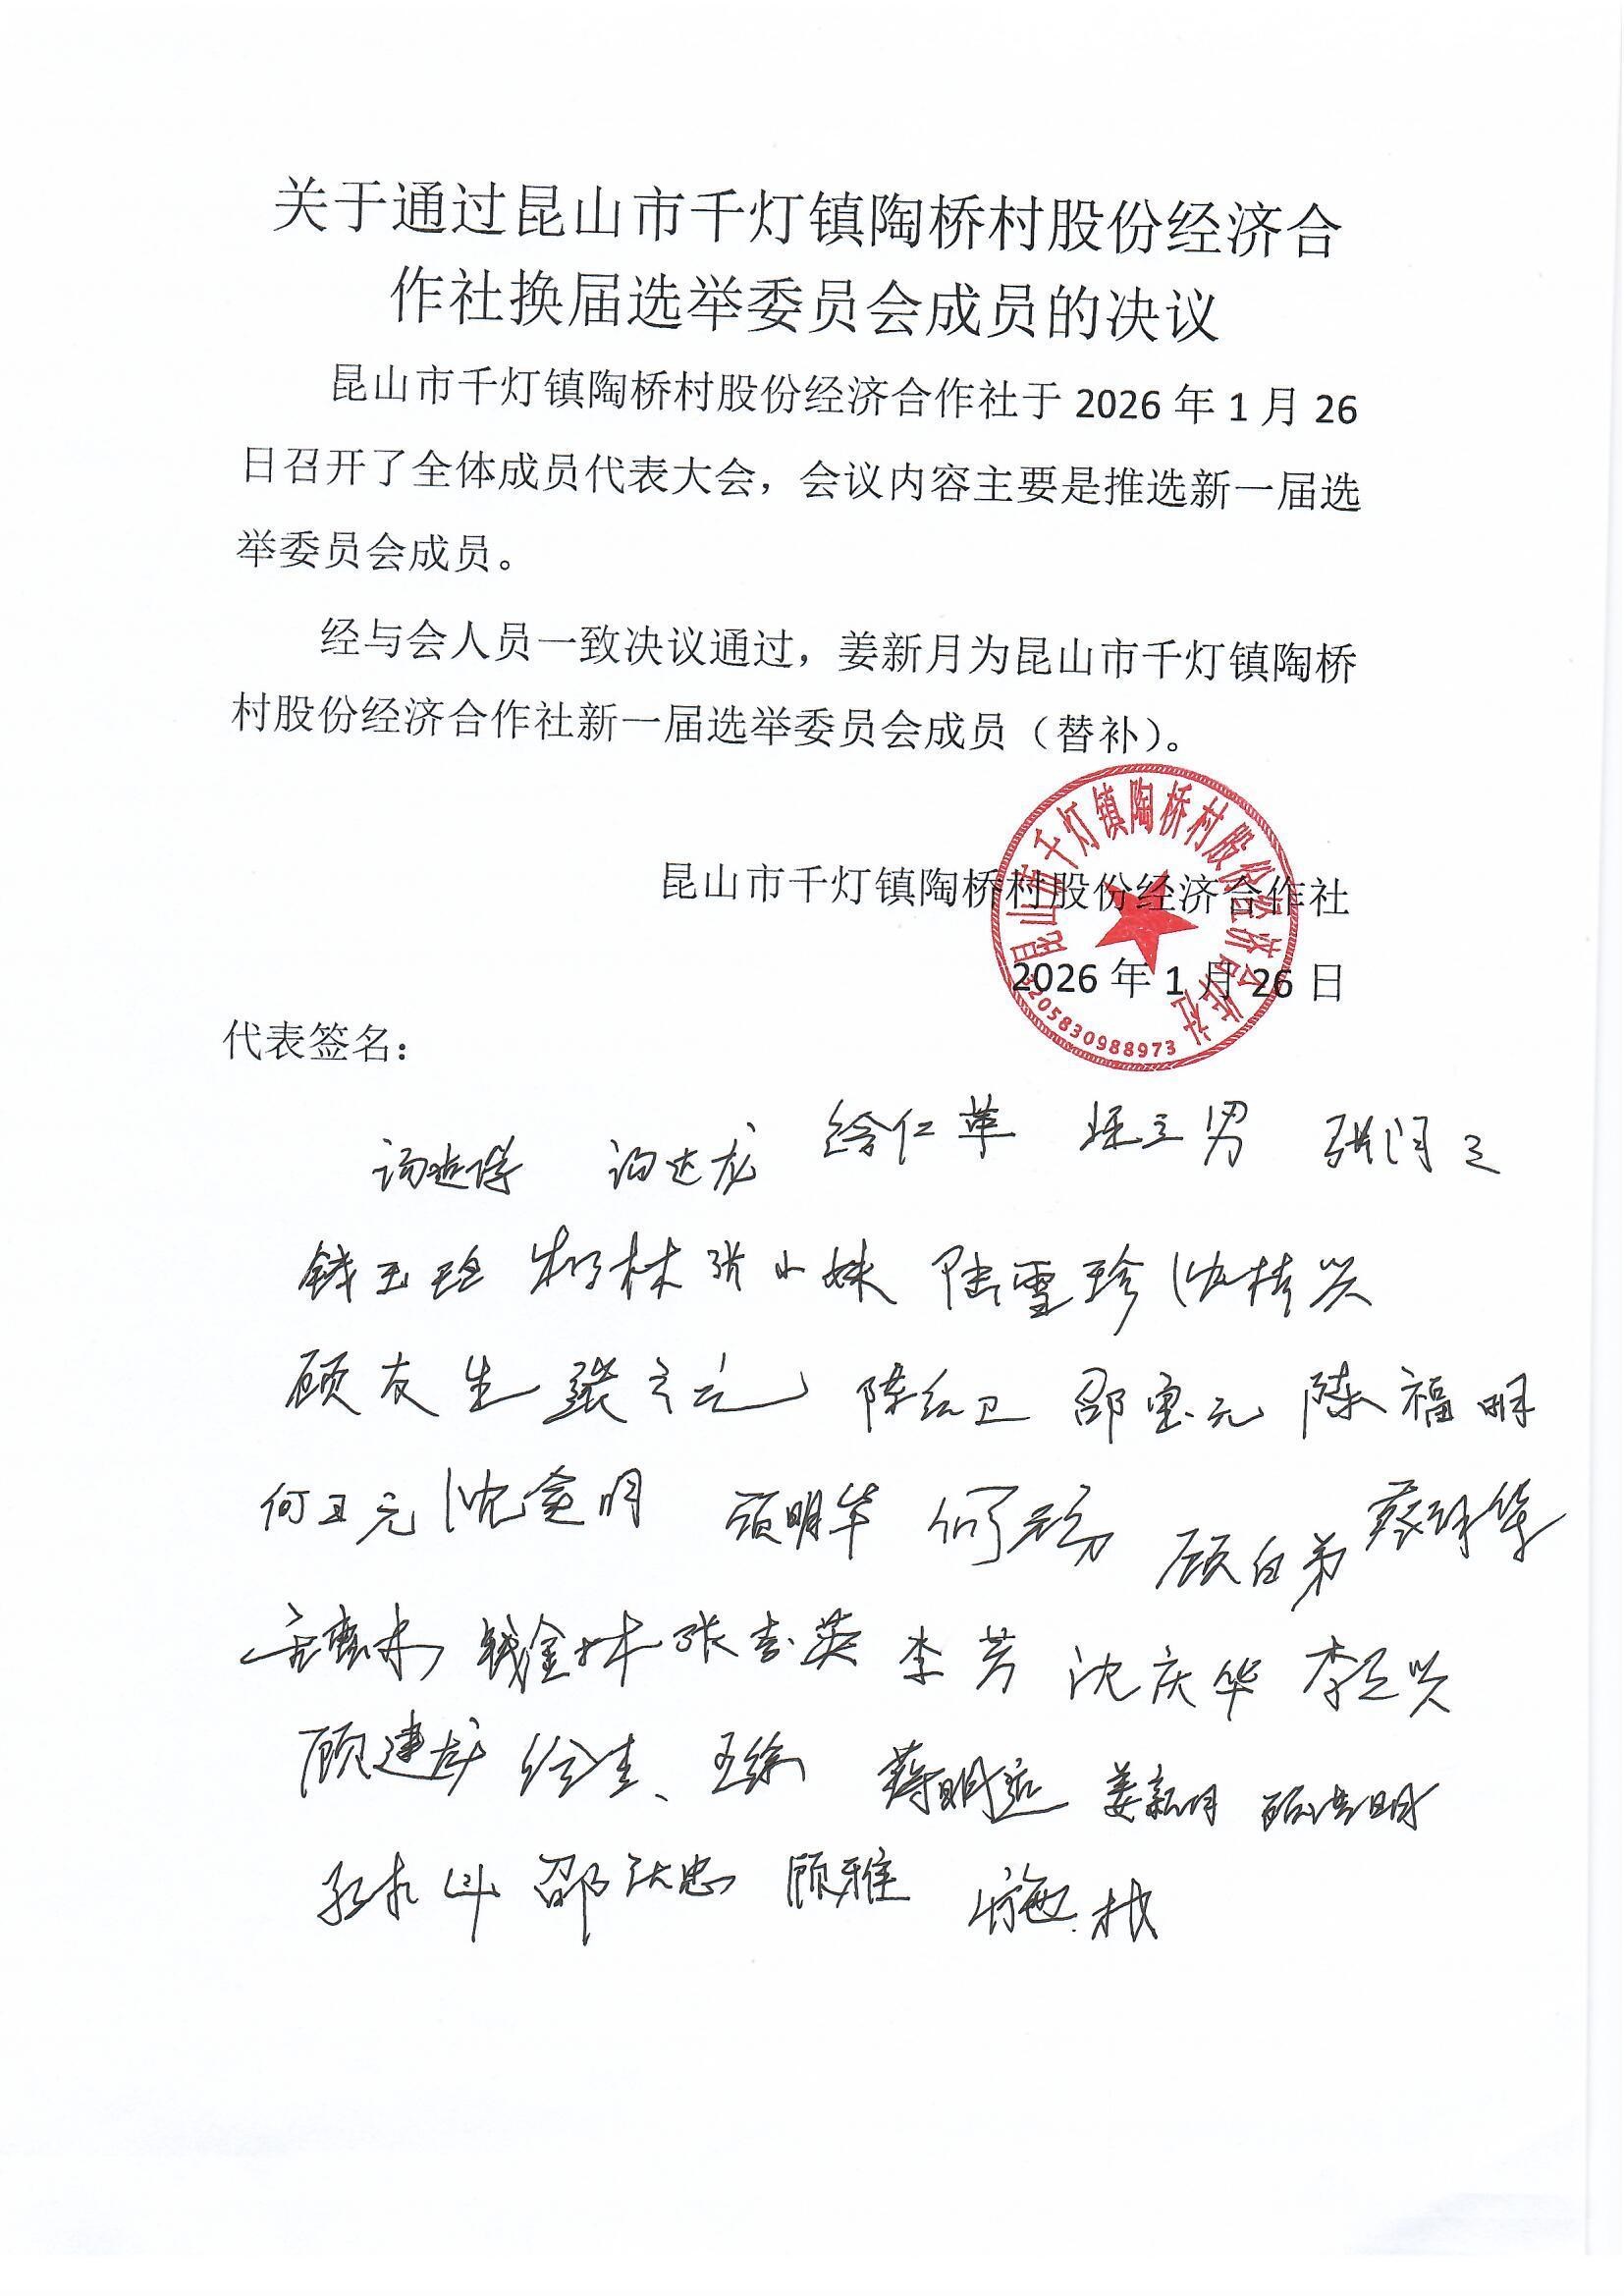 关于通过昆山市千灯镇陶桥村股份经济合
作社换届选举委员会成员的决议
昆山市千灯镇陶桥村股份经济合作社于 2026 年 1 月 26
日召开了全体成员代表大会，会议内容主要是推选新一届选
举委员会成员。
经与会人员一致决议通过，姜新月为昆山市千灯镇陶桥
村股份经济合作社新一届选举委员会成员（替补）。
昆山市千灯镇陶桥村股份经济合作社
2026 年 1 月 26 日
昆山市千灯镇陶桥村股份经济合作社
3205830988973
代表签名：
徐仁革
钱玉 林 张小妹 陆雪珍 沈 兴
顾友生 张 元 陈红卫 邵惠元 陈福明
何卫元 沈 明 顾明华 何 顾白弟 蔡 华
钱金林 张杏英 李芳 沈庆华 李 兴
顾建龙 王 蒋明 姜新月 明
邵 忠 顾雅 施